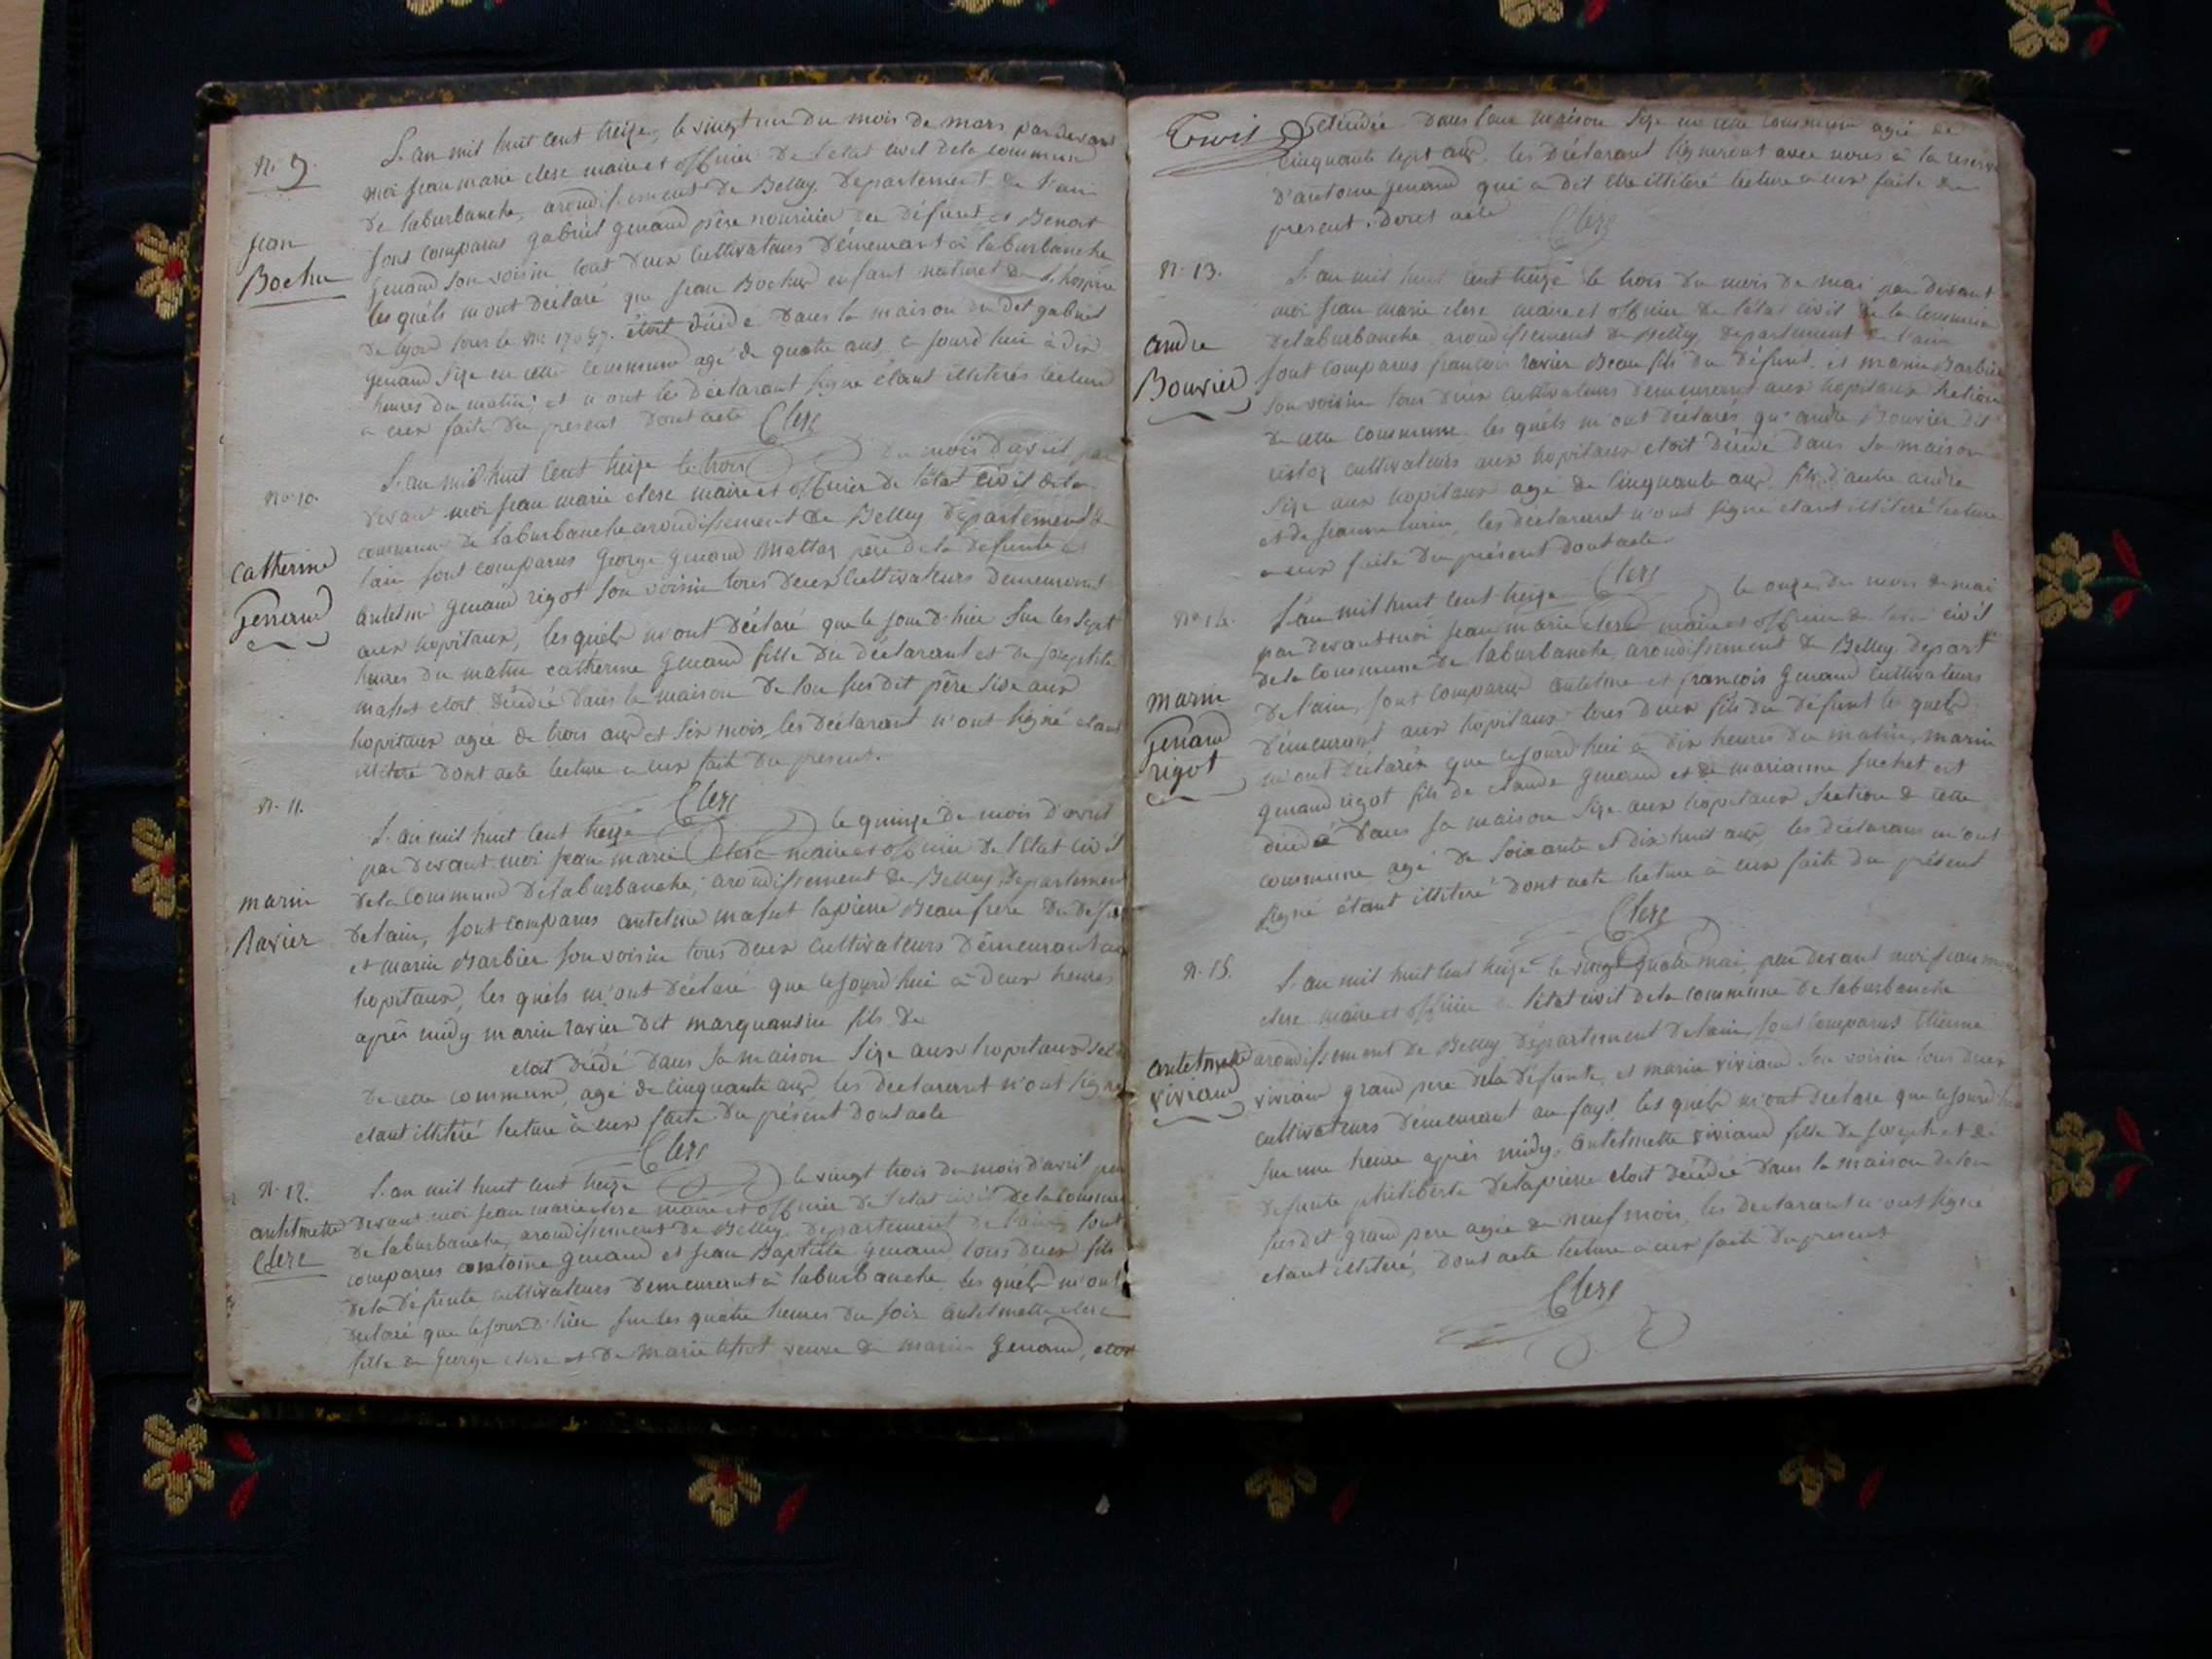 N. 9.
L'an mil huit cent treize, le vingt un du mois de mars par devant
moi jean marie clerc maire et officier de l'etat civil de la commune
de laburbanche, arondissement de Belley Departement de l'ain
sont comparus gabriel genand père nouricier du défunt, et Benoit
jean
Bochu
genand son voisin tout deux cultivateurs démeurant à laburbanche
les quels m'ont déclaré que jean Bochu enfant naturel de l'hospice
de lyon sous le No. étoit décédé dans la maison du dit gabriel
genand size en cette commune agé de quatre ans, ce jourd'hui à dix
heures du matin; et n'ont les déclarant signé étant illiterés lecture
a eux faite du present dont acte Clerc
No. 10.
L'an mil huit cent treize le trois du mois d'avril par
devant moi jean marie clerc maire et officier de l'état civil de la
commune de laburbanche arondissement de Belley Departement de
Catherine
Genand
l'ain sont comparus George genand Mattas père de la defunte et
antelme genand rigot son voisin tous deux cultivateurs demeurant
aux hopitaux, les quels m'ont déclaré que le jour d'hier sur les sept
heures du matin catherine genand fille du déclarant et de josephte
masset etoit décédée dans la maison de son sus dit père size aux
hopitaux agée de trois ans et six mois, les déclarant n'ont signé etant
illiteré dont acte lecture a eux fait du present.
Clerc
N. 11.
L'an mil huit cent treize le quinze de mois d'avril
par devant moi jean marie Clerc maire et officier de l'Etat civil
de la commune de laburbanche, arondissement de Belley Departement
marin
Ravier
de l'ain, sont comparus antelme masset lapierre Beaufrere du défunt
et marin Barbier son voisin tous deux cultivateurs démeurant aux
hopitaux, les quels m'ont déclaré que ce jourd'hui à deux heures
après midy marin ravier dit marquansin fils de
etoit décédé dans sa maison size aux hopitaux
de cette commune, agé de cinquante ans les declarant n'ont signé
etant illiteré lecture à eux faite du présent dont acte
Clerc
N. 12.
L'an mil huit cent treize le vingt trois du mois d'avril par
antelmette
Clerc
devant moi jean marie clerc maire et officier de l'etat civil de la commune
de laburbanche, arondissement de Belley departement de l'ain, sont
comparus antoine genand et jean Baptiste genand tous deux fils
de la défunte cultivateurs demeurant à laburbanche les quels m'ont
declaré que le jour d'hier sur les quatre heures du soir antelmette clerc
fille de George clerc et de marie veuve de marin genand, etoit
Trois
décédée dans leur maison size en cette commune agée de
cinquante sept ans, les déclarant signeront avec nous à la reserve
d'antoine genand qui a dit etre illiteré lecture a eux faite du
present. dont acte Clerc
N. 13.
L'an mil huit cent treize le trois du mois de mai par devant
moi jean marie clerc maire et officier de l'état civil de la commune
andre
Bouvier
de laburbanche arondissement de Belley, departement de l'ain
sont comparus francois ravier Beau fils du défunt, et marin Barbier
son voisin tous deux cultivateurs demeurant aux hopitaux section
de cette commune les quels m'ont déclarés qu'andre Bouvier dit
cultivateurs aux hopitaux etoit décédé dans sa maison
size aux hopitaux agé de cinquante ans, fils d'autre andre
et de jeanne les déclarant n'ont signé etant illiteré lecture
a eux faite du présent dont acte
Clerc
No. 14.
L'an mil huit cent treize le onze du mois de mai
par devant moi jean marie clerc maire et officier de l'etat civil
de la commune de laburbanche, arondissement de Belley, depart.t
marin
Genand
rigot
de l'ain, sont comparus antelme et françois genand cultivateurs
démeurant aux hopitaux tous deux fils du défunt les quels
m'ont déclarés que ce jourd'hui à dix heures du matin, marin
genand rigot fils de claude genand et de marianne suchet est
décédé dans sa maison size aux hopitaux section de cette
commune agé de soixante et dix huit ans, les déclarans n'ont
signé étant illiteré dont acte lecture à eux faite du présent
Clerc
N. 15.
L'an mil huit cent treize le vingt quatre mai, par devant moi jean marie
clerc maire et officier de l'état civil de la commune de laburbanche
antelmette
viviand
arondissement de Belley, département de l'ain, sont comparus Etienne
viviand grand pere de la défunte, et marin viviand son voisin tous deux
cultivateurs démeurant au fays, les quels m'ont declaré que ce jourd'hui
sur une heure après midy, antelmette viviand fille de joseph et de
defunte philiberte delapierre etoit décédée dans la maison de son
sus dit grand pere agée de neuf mois, les declarant n'ont signé
etant illiteré, dont acte lecture a eux faite du present
Clerc